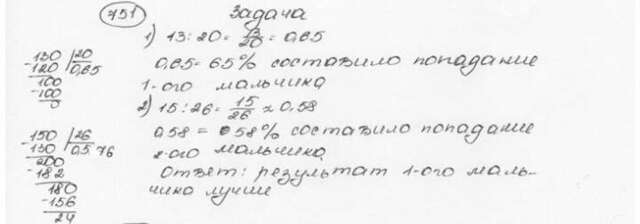 751 Задача
1) 13:20 = 13/20 = 0,65
0,65 = 65% составило попадание
1-ого мальчика
2) 15:26 = 15/26 ≈ 0,58
0,58 = 58% составило попадание
2-ого мальчика
Ответ: результат 1-ого маль-
чика лучше
-130 |20
120 |0,65
100
-100
0
-150 |26
130 |0,576
200
-182
180
-156
24